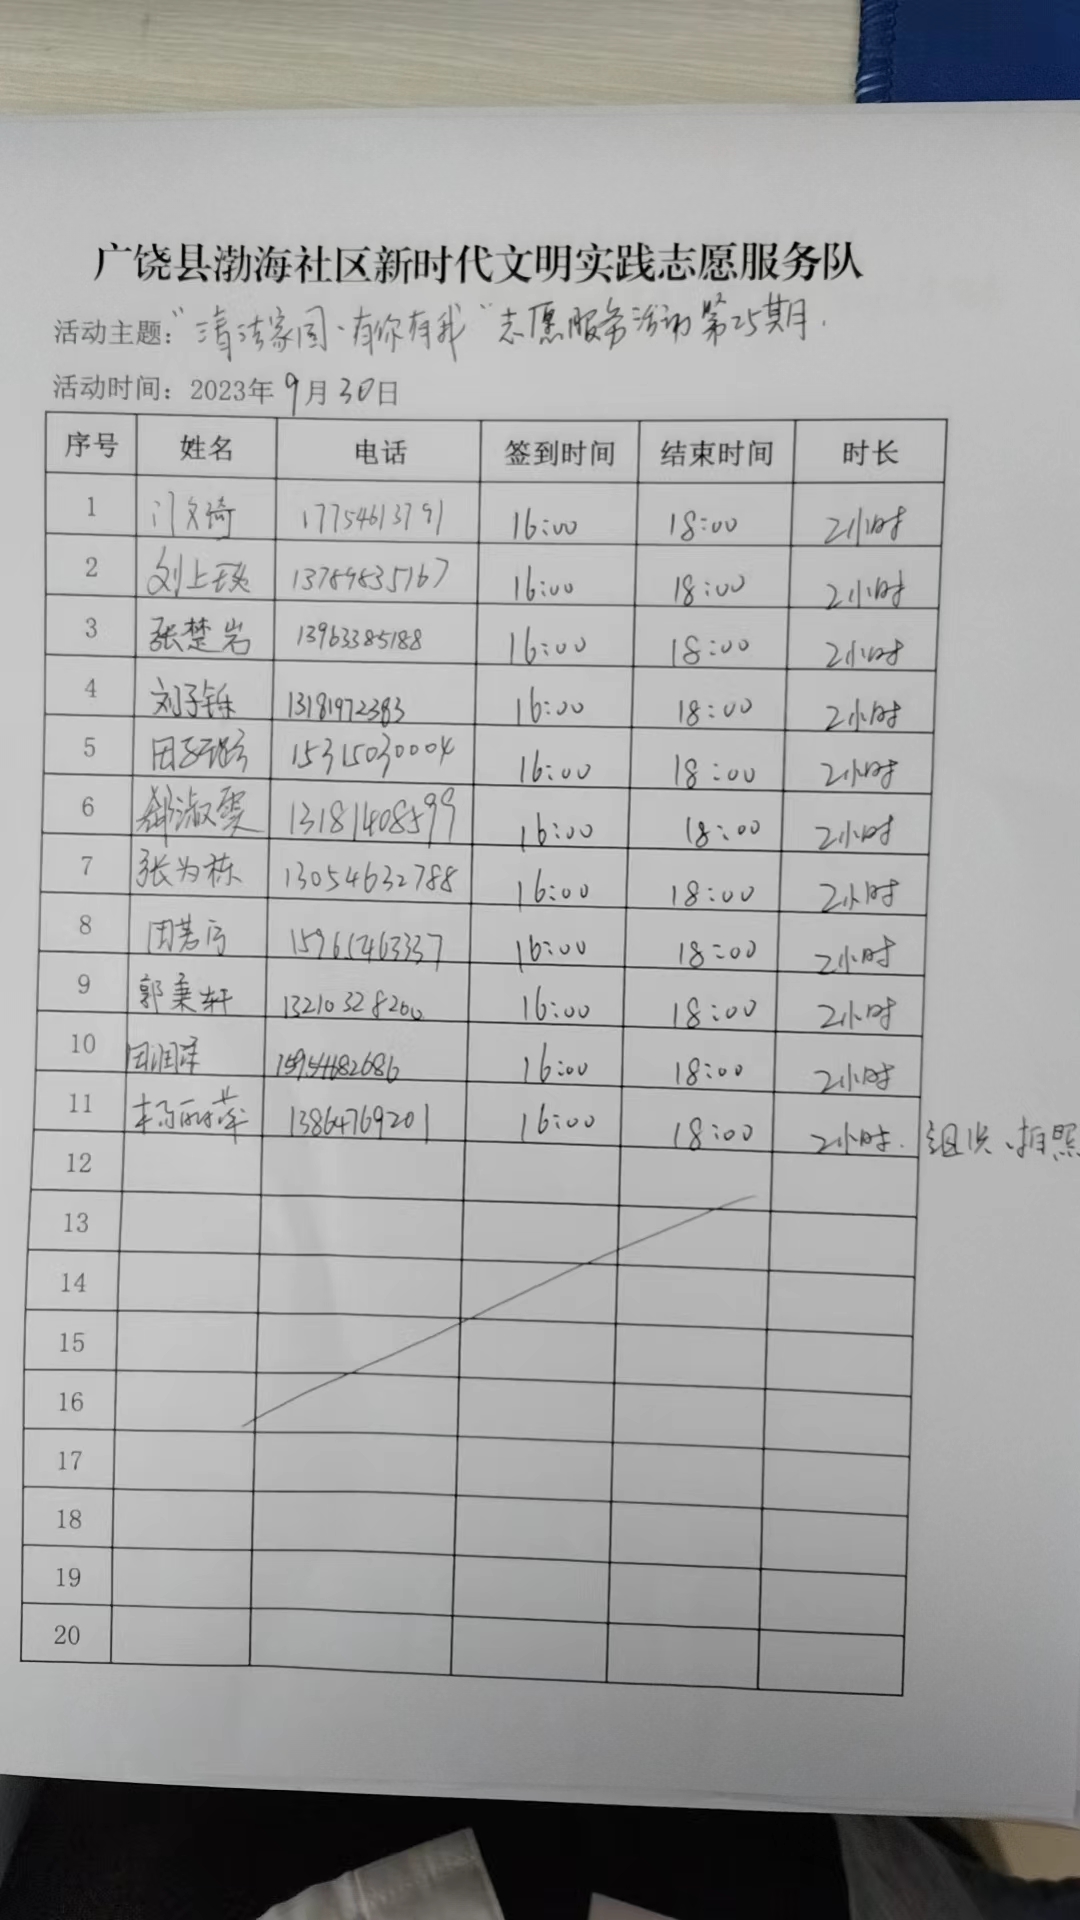 广饶县渤海社区新时代文明实践志愿服务队
活动主题:“清洁家园·有你有我”志愿服务活动第25期.
活动时间: 2023年9月30日
序号 姓名 电话 签到时间 结束时间 时长
1 门文琦 17754613791 16:00 18:00 2小时
2 刘上 13789835767 16:00 18:00 2小时
3 张楚岩 13963385188 16:00 18:00 2小时
4 刘子铄 13181972383 16:00 18:00 2小时
5 15315030004 16:00 18:00 2小时
6 淑雯 13181408599 16:00 18:00 2小时
7 张为栋 13054632788 16:00 18:00 2小时
8 16:00 18:00 2小时
9 郭秉轩 13210328200 16:00 18:00 2小时
10 润泽 15954682686 16:00 18:00 2小时
11 杨丽萍 13864769201 16:00 18:00 2小时. 组织、拍照
12
13
14
15
16
17
18
19
20